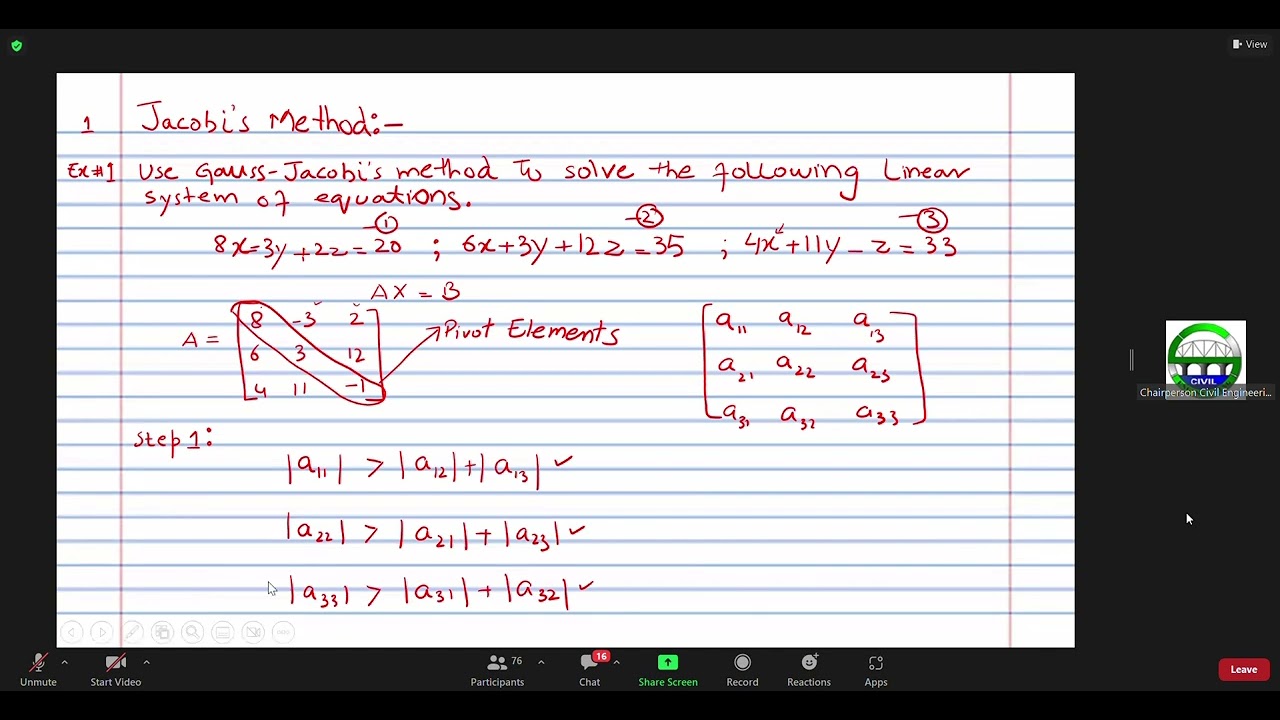 View
1 Jacobi's Method:-
Ex#1 Use Gauss-Jacobi's method to solve the following Linear
system of equations.
8x-3y+2z=20 -① ; 6x+3y+12z=35 -② ; 4x+11y-z=33 -③
AX = B
A = [8 -3 2
6 3 12
4 11 -1]
Pivot Elements
[a11 a12 a13
a21 a22 a23
a31 a32 a33]
Step 1:
|a11| > |a12|+|a13| ✓
|a22| > |a21|+|a23| ✓
|a33| > |a31|+|a32| ✓
CIVIL
Chairperson Civil Engineeri...
Unmute
Start Video
Participants 76
Chat 16
Share Screen
Record
Reactions
Apps
Leave